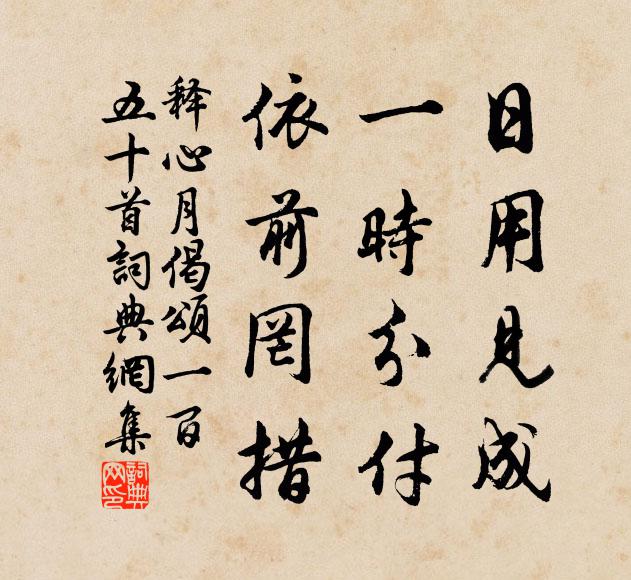 日用見成
一時分付
依前罔措
釋心月偈頌一百
五十首詞典網集
詞典
网印